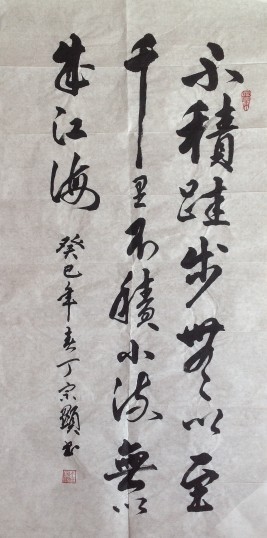 不積跬步無以至
千里不積小流無以
成江海
癸巳年春丁宗顯書